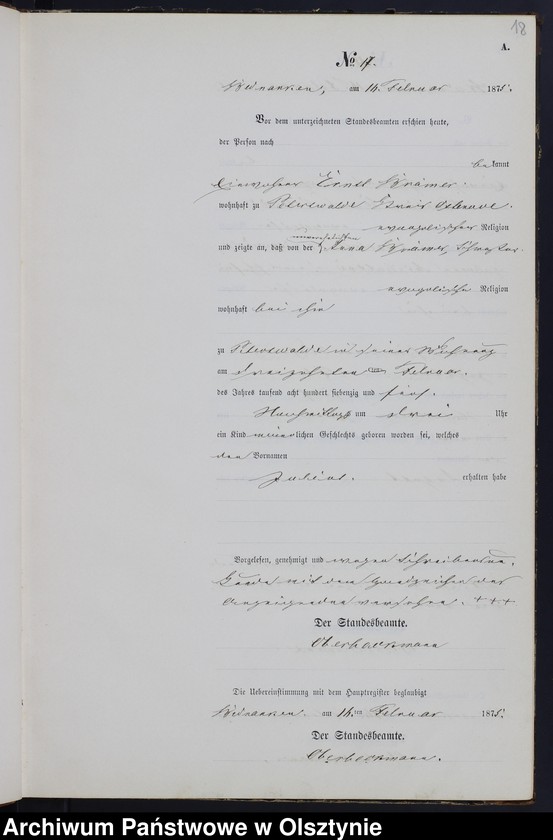 18
A.
No 17.
am 16. Februar 1875.
Vor dem unterzeichneten Standesbeamten erschien heute,
der Person nach
bekannt
Einwohner Ernst Krämer.
wohnhaft zu Peterswalde Kreis Osterode.
evangelischer Religion
unverehelichten
und zeigte an, daß von der Anna Krämer, Schwester
evangelische Religion
wohnhaft bei ihm
zu Peterswalde in seiner Wohnung
am dreizehnten Februar.
des Jahres tausend acht hundert siebenzig und fünf.
Nachmittags um drei Uhr
ein Kind männlichen Geschlechts geboren worden sei, welches
den Vornamen
Julius. erhalten habe
Vorgelesen, genehmigt und wegen Schreibensun-
kunde mit dem Handzeichen des
Anzeigenden versehen. +++
Der Standesbeamte.
Oberbeckmann
Die Uebereinstimmung mit dem Hauptregister beglaubigt
am 16.ten Februar 1875.
Der Standesbeamte.
Oberbeckmann.
Archiwum Państwowe w Olsztynie